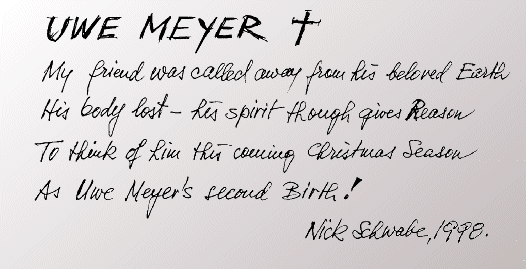 UWE MEYER ✝
My friend was called away from his beloved Earth
His body lost – his spirit though gives Reason
To think of him this coming Christmas Season
As Uwe Meyer's second Birth!
Nick Schwabe, 1998.